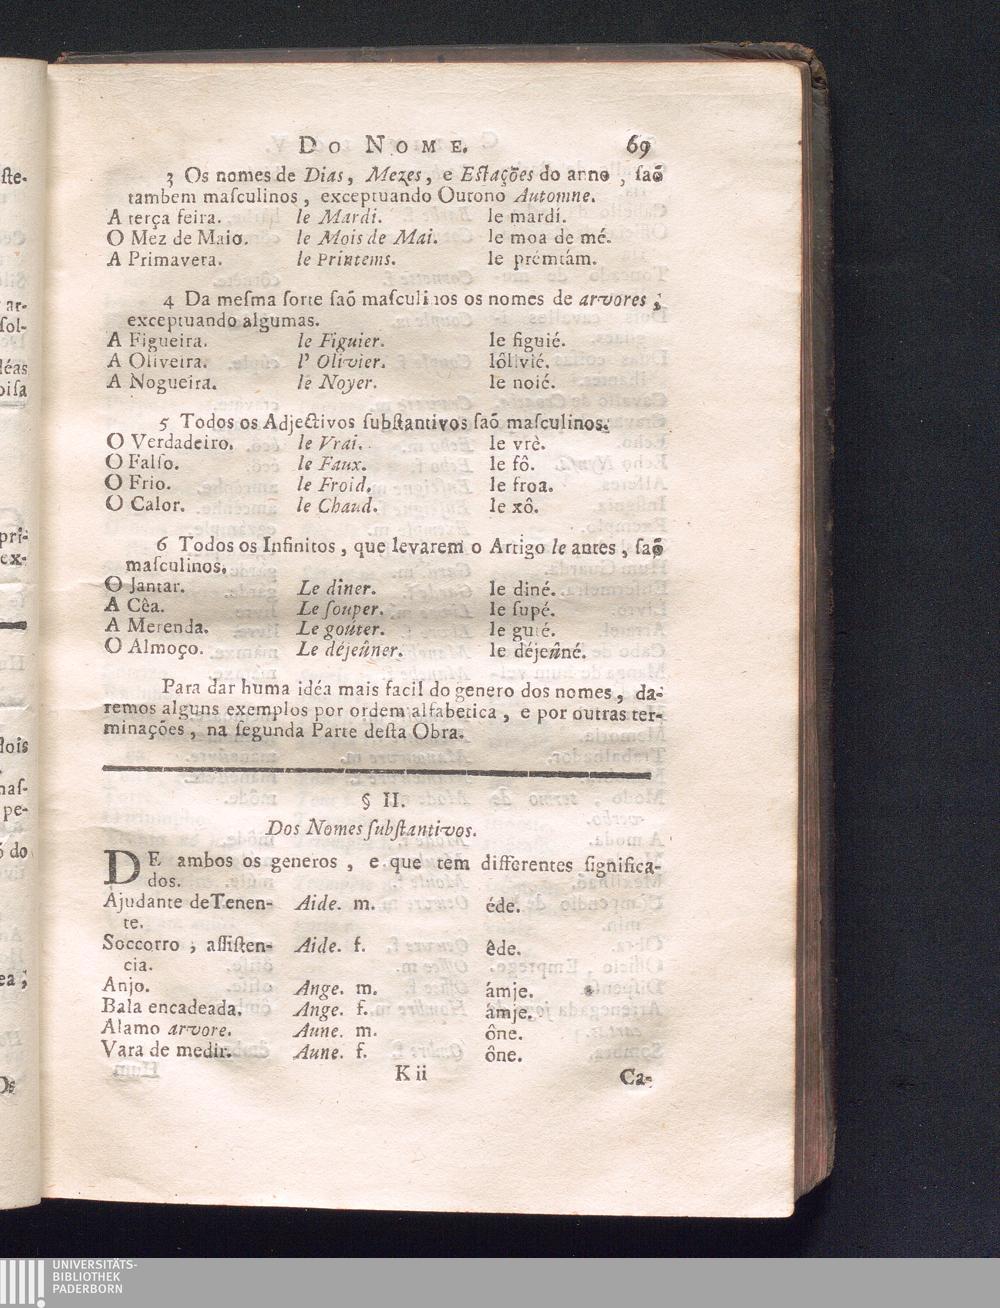 DO NOME. 69
3 Os nomes de Dias, Mezes, e Eſtações do anno, ſaõ
tambem maſculinos, exceptuando Outono Automne.
A terça feira. le Mardi. le mardí.
O Mez de Maio. le Mois de Mai. le moa de mé.
A Primavera. le Printems. le prémtám.
4 Da meſma ſorte ſaõ maſculinos os nomes de arvores;
exceptuando algumas.
A Figueira. le Figuier. le figuié.
A Oliveira. l' Olivier. lôlivié.
A Nogueira. le Noyer. le noié.
5 Todos os Adjectivos ſubſtantivos ſaõ maſculinos.
O Verdadeiro. le Vrai. le vrè.
O Falſo. le Faux. le fô.
O Frio. le Froid. le froa.
O Calor. le Chaud. le xô.
6 Todos os Infinitos, que levarem o Artigo le antes, ſaõ
maſculinos.
O Jantar. Le dîner. le diné.
A Cêa. Le ſouper. le ſupé.
A Merenda. Le goûter. le guté.
O Almoço. Le déjeûner. le déjeûné.
Para dar huma idéa mais facil do genero dos nomes, da-
remos alguns exemplos por ordem alfabetica, e por outras ter-
minações, na ſegunda Parte deſta Obra.
§ II.
Dos Nomes ſubſtantivos.
DE ambos os generos, e que tem differentes ſignifica-
dos.
Ajudante de Tenen- Aide. m. éde.
te.
Soccorro, aſſiſten- Aide. f. êde.
cia.
Anjo. Ange. m. ámje.
Bala encadeada. Ange. f. ámje.
Alamo arvore. Aune. m. ône.
Vara de medir. Aune. f. ône.
K ii Ca-
UNIVERSITÄTS-
BIBLIOTHEK
PADERBORN